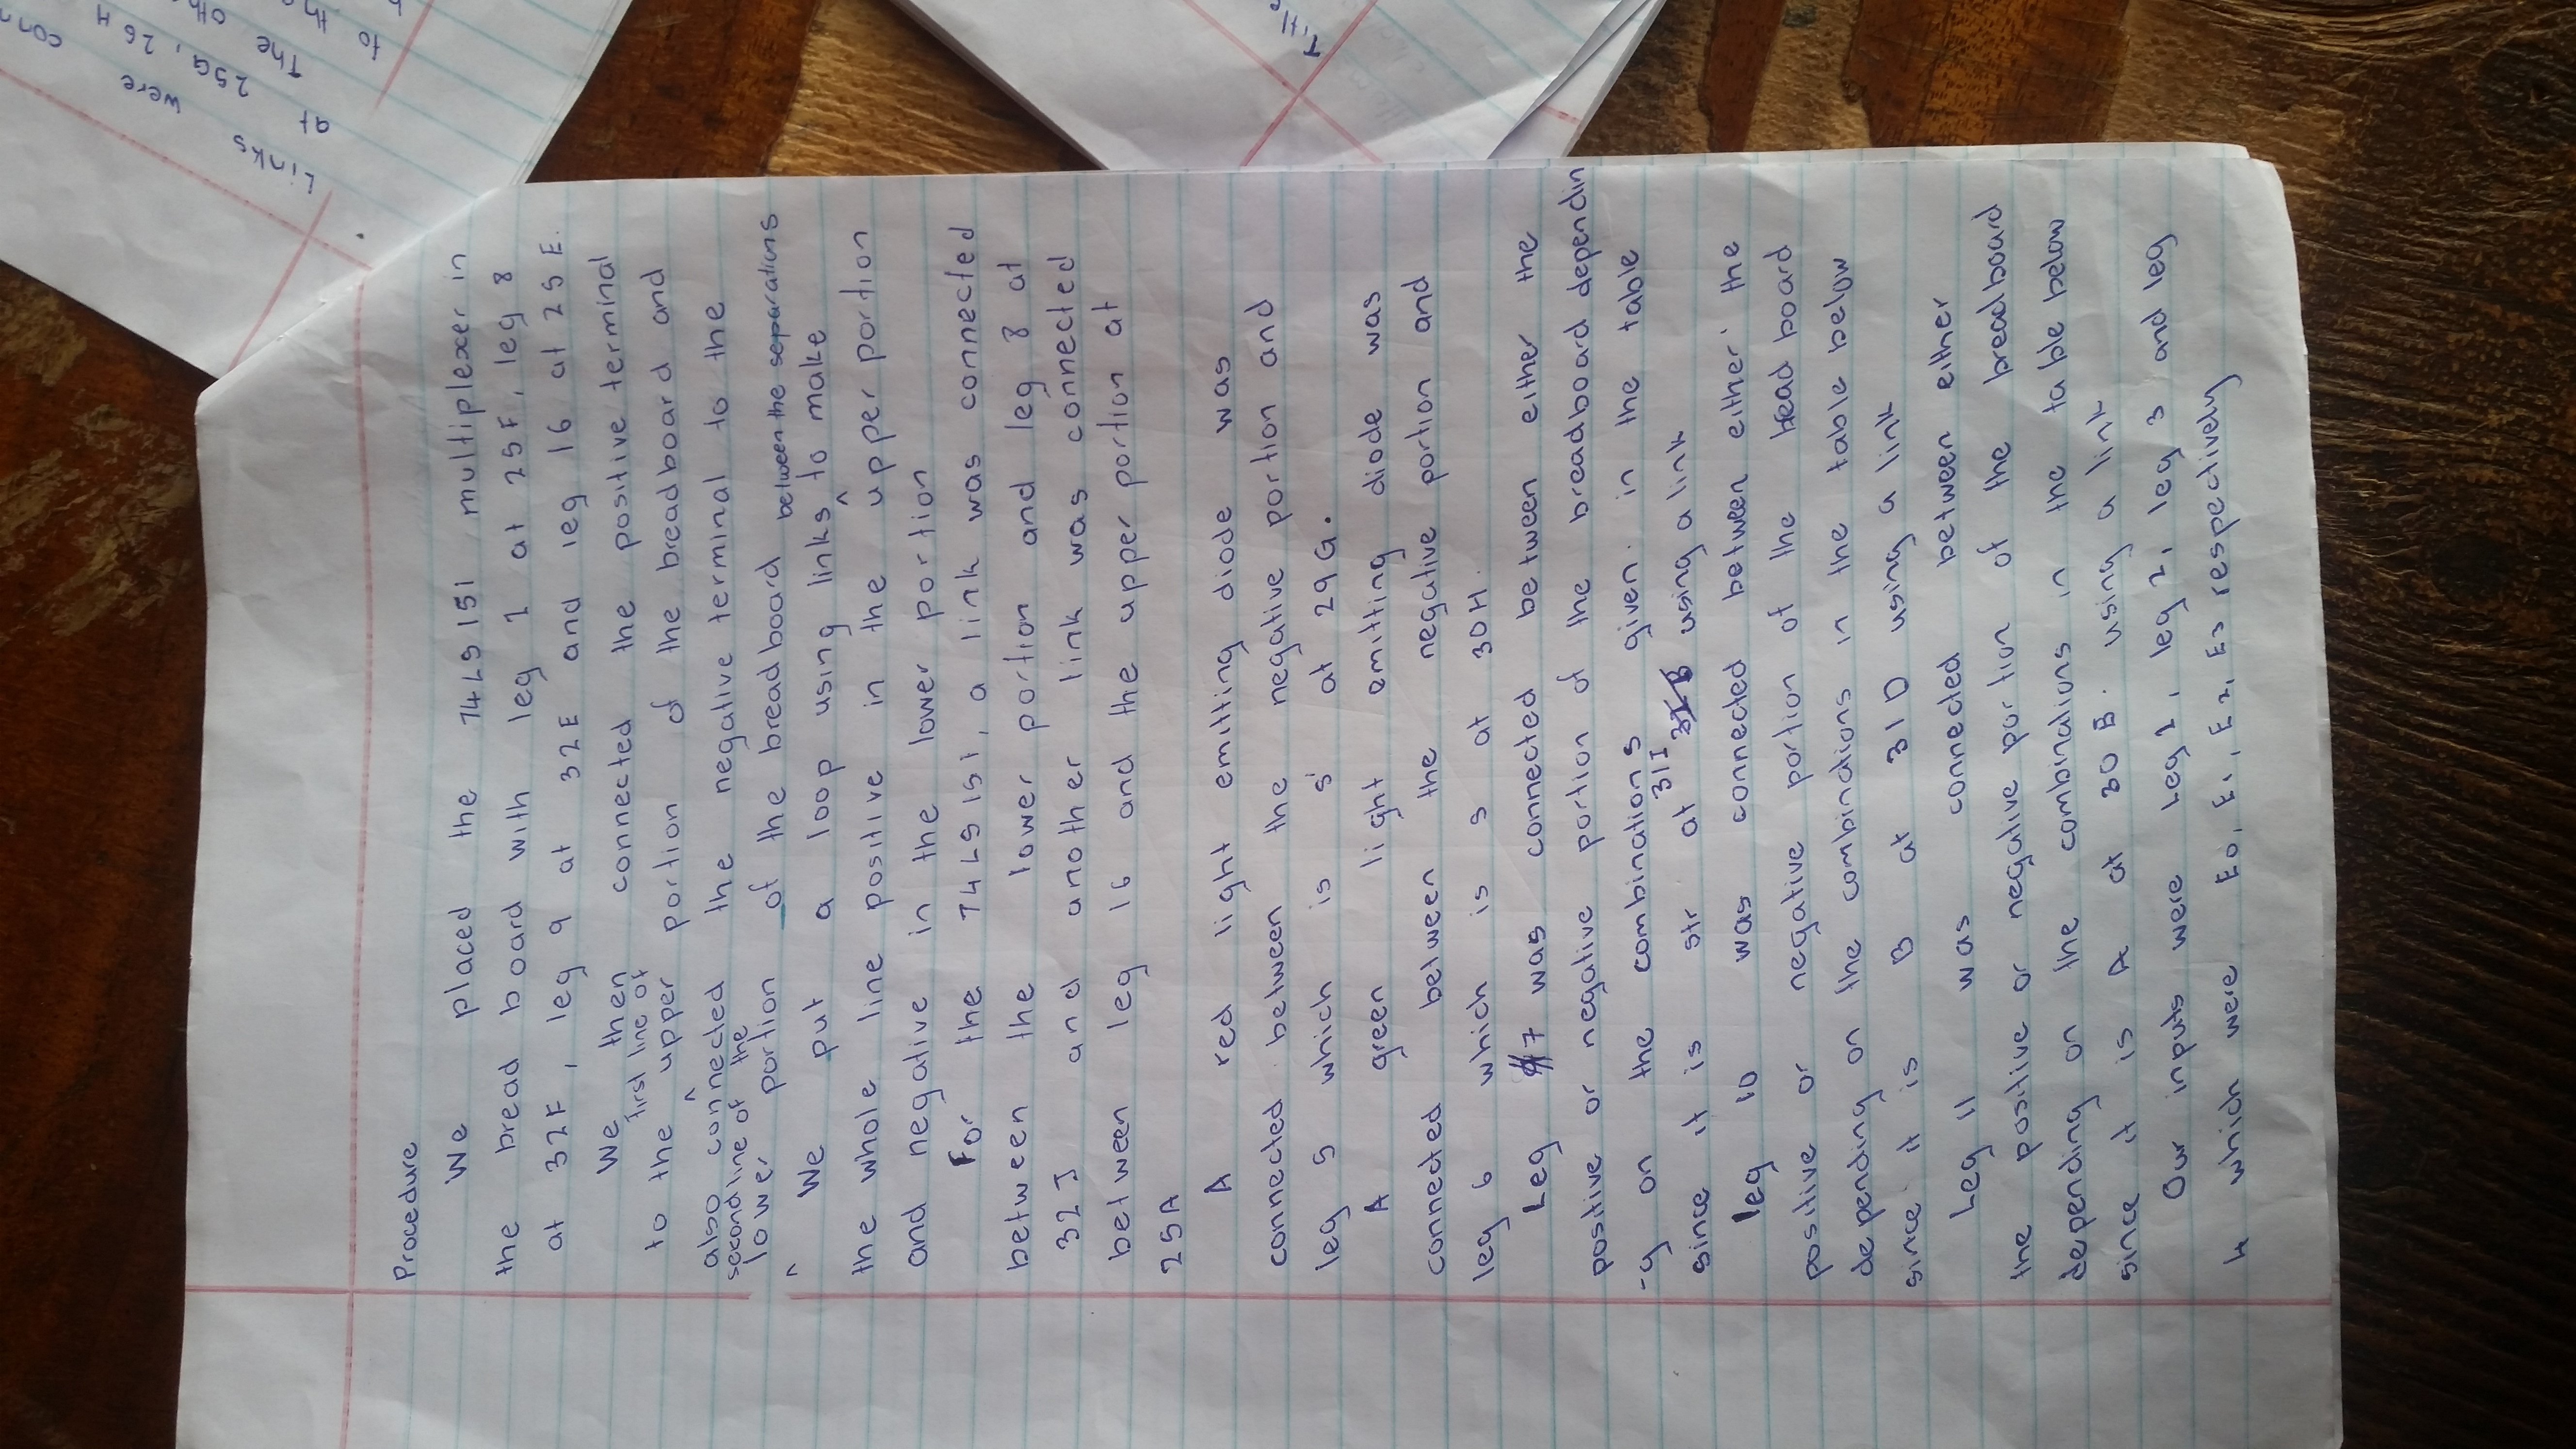 Procedure
We placed the 74LS151 multiplexer in
the bread board with leg 1 at 25F, leg 8
at 32F, leg 9 at 32E and leg 16 at 25E.
We then connected the positive terminal
first line of
to the upper portion of the breadboard and
also connected the negative terminal to the
second line of the
lower portion of the breadboard
between the separations
We put a loop using links to make
the whole line positive in the upper portion
and negative in the lower portion
For the 74LS151, a link was connected
between the lower portion and leg 8 at
32J and another link was connected
between leg 16 and the upper portion at
25A
A red light emitting diode was
connected between the negative portion and
leg 5 which is s' at 29G.
A green light emitting diode was
connected between the negative portion and
leg 6 which is s at 30H.
Leg 7 was connected between either the
positive or negative portion of the breadboard dependin
-g on the combinations given in the table
since it is str at 31I using a link
leg 10 was connected between either the
positive or negative portion of the bread board
depending on the combinations in the table below
since it is B at 31D using a link
Leg 11 was connected between either
the positive or negative portion of the breadboard
depending on the combinations in the table below
since it is A at 30B. using a link
Our inputs were Leg 1, leg 2, leg 3 and leg
4 which were E0, E1, E2, E3 respectively
Links were con
at 25G, 26H
The oth
to th
Title